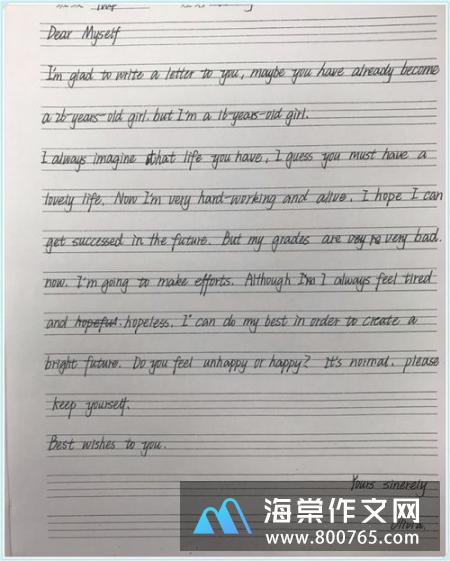 Dear Myself
I'm glad to write a letter to you, maybe you have already become
a 26-years-old girl. but I'm a 16-years-old girl.
I always imagine what life you have, I guess you must have a
lovely life. Now I'm very hard-working and alive. I hope I can
get successed in the future. But my grades are very bad
now. I'm going to make efforts. Although I always feel tired
and hopeful. hopeless. I can do my best in order to create a
bright future. Do you feel unhappy or happy? It's normal. please
keep yourself.
Best wishes to you.
Yours sinerely
海棠作文网
www.800765.com